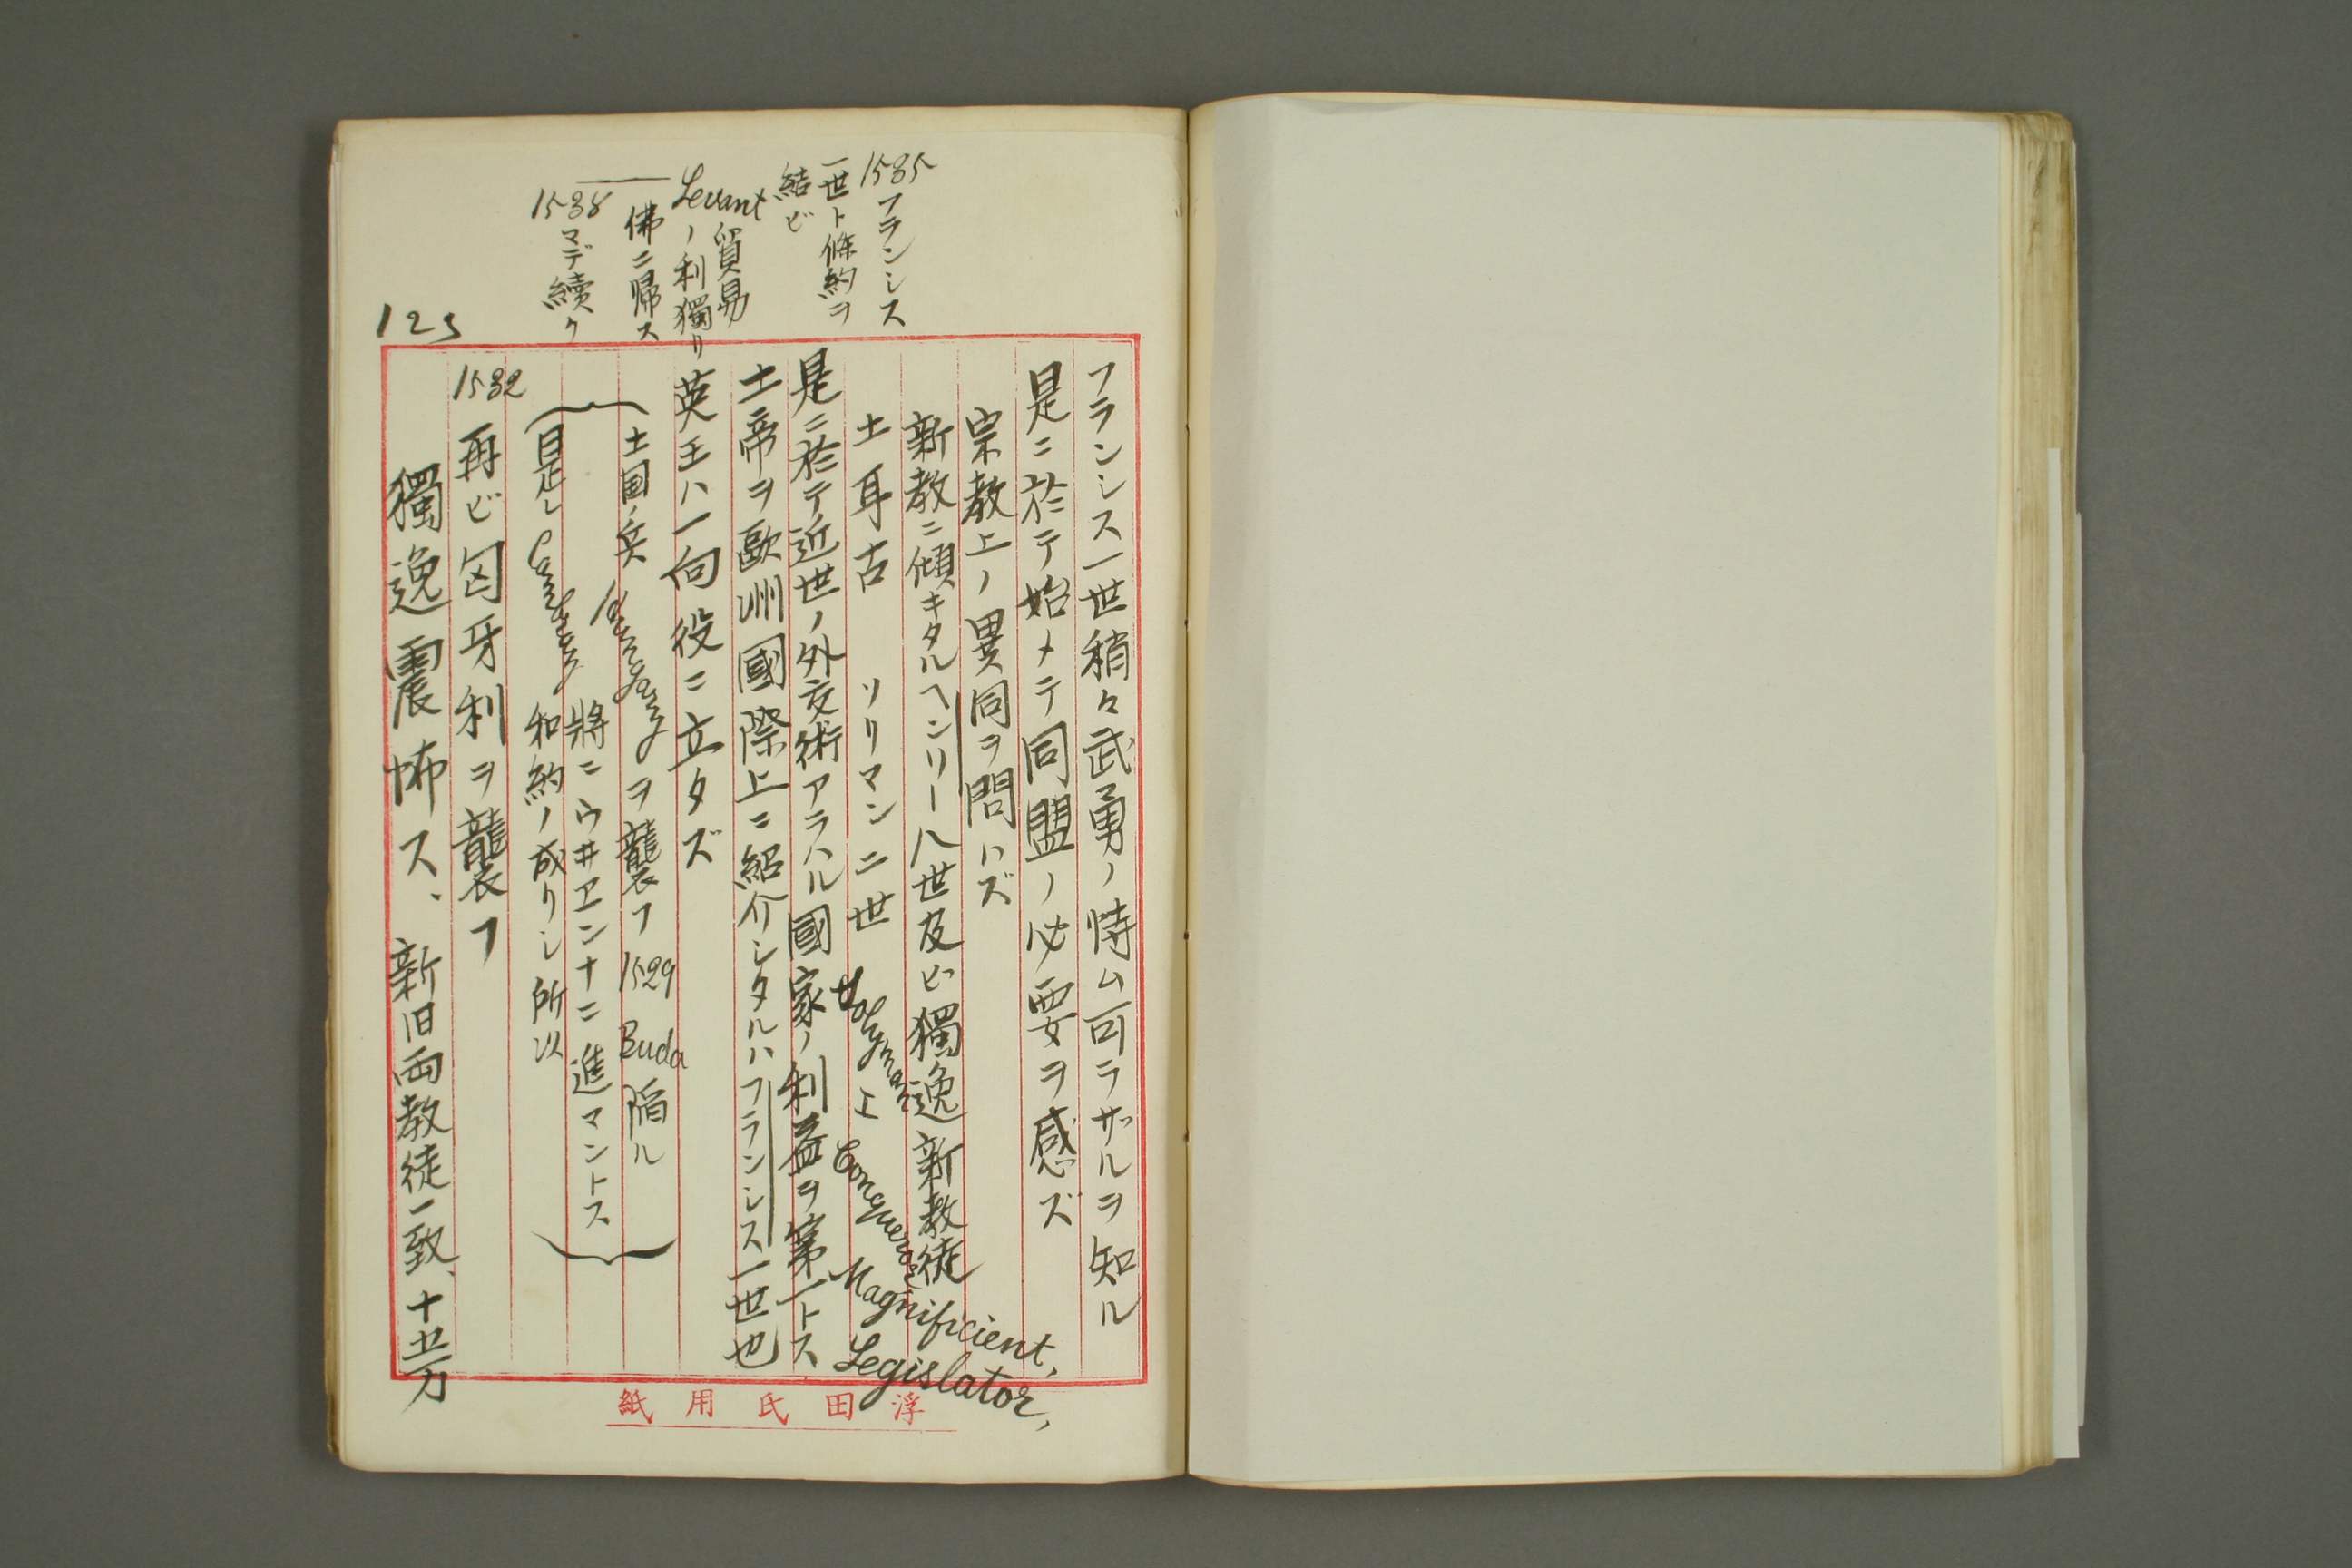 1535 フランシス
一世ト條約ヲ
結ビ
Levant 貿易
ノ利獨リ
佛ニ帰ス
1538 マデ續ク
123
フランシス一世稍々武勇ノ恃ム可ラザルヲ知ル
是ニ於テ始メテ同盟ノ必要ヲ感ズ
宗教上ノ異同ヲ問ハズ
新教ニ傾キタルヘンリー八世及ビ獨逸新教徒
土耳古 ソリマン二世 Conqueror Magnificient, Legislator,
是ニ於テ近世ノ外交術アラハル國家ノ利益ヲ第一トス
土帝ヲ歐洲國際上ニ紹介シタルハフランシス一世也
英王ハ一向役ニ立タズ
土国ノ兵 Hungary ヲ襲フ 1529 Buda 陥ル
將ニウ井エンナニ進マントス
是レ Cambray 和約ノ成リシ所以
1532 再ビ匈牙利ヲ襲フ
獨逸震怖ス、新旧両教徒一致、十五万
浮田氏用紙